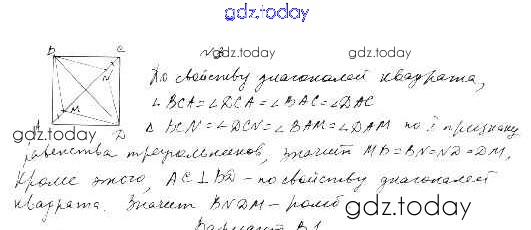 gdz.today
№3
gdz.today
gdz.today
B C
N
По свойству диагоналей квадрата,
∠BCA = ∠DCA = ∠BAC = ∠DAC
M
A D
gdz.today
△ BCN = ∠DCN = ∠BAM = ∠DAM по I признаку
равенства треугольников, значит MB = BN = ND = DM,
кроме этого, AC ⊥ BD - по свойству диагоналей
квадрата. Значит BNDM - ромб
gdz.today
Вариант